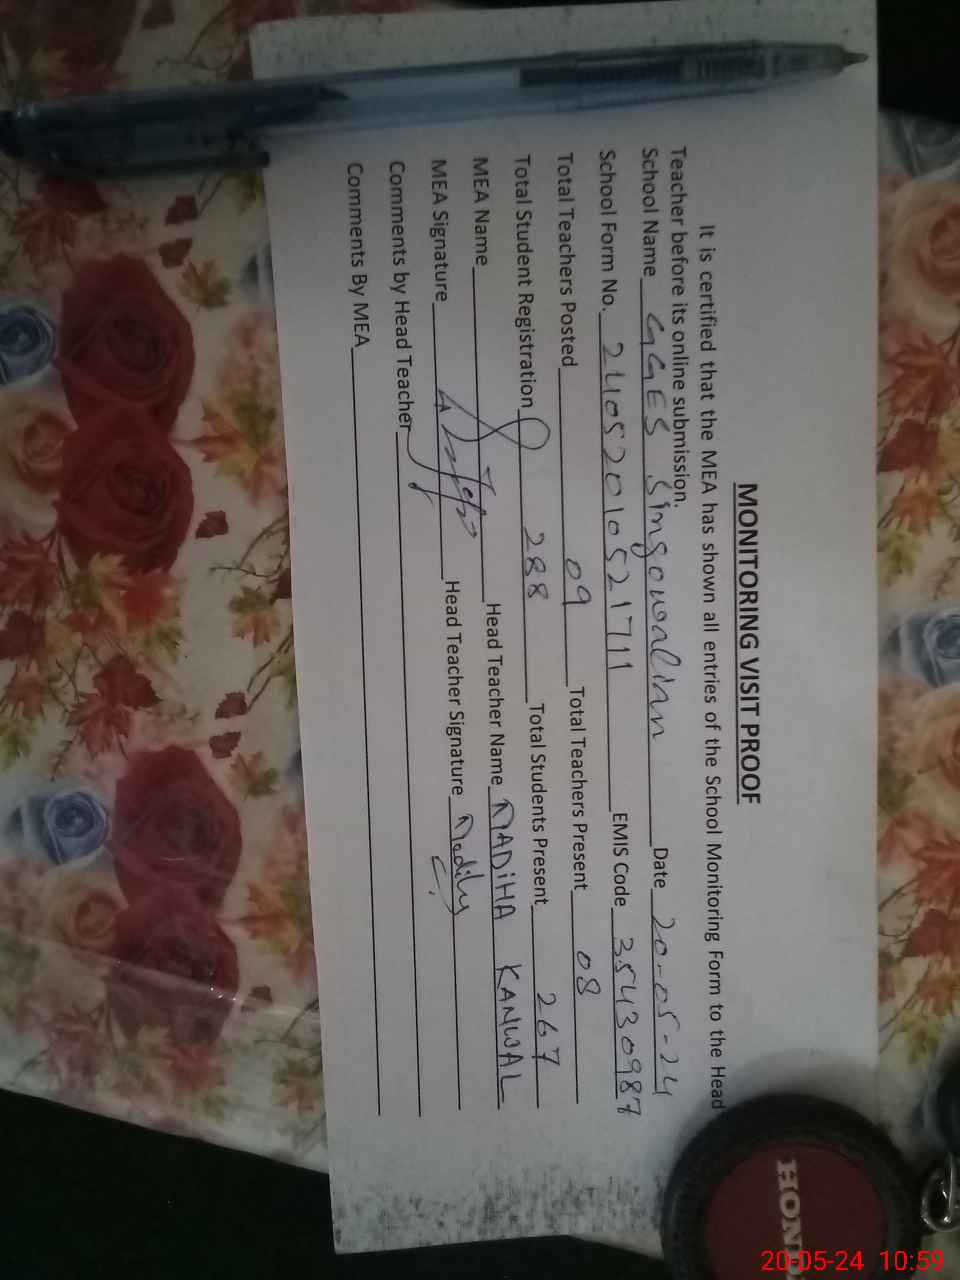 MONITORING VISIT PROOF
It is certified that the MEA has shown all entries of the School Monitoring Form to the Head
Teacher before its online submission.
School Name GGES Singowalian Date 20-05-24
School Form No. 24052010521711 EMIS Code 35430987
Total Teachers Posted 09 Total Teachers Present 08
Total Student Registration 288 Total Students Present 267
MEA Name Head Teacher Name MADiHA KANWAL
MEA Signature Head Teacher Signature Madiha
Comments by Head Teacher
Comments By MEA
HOND
20-05-24 10:59